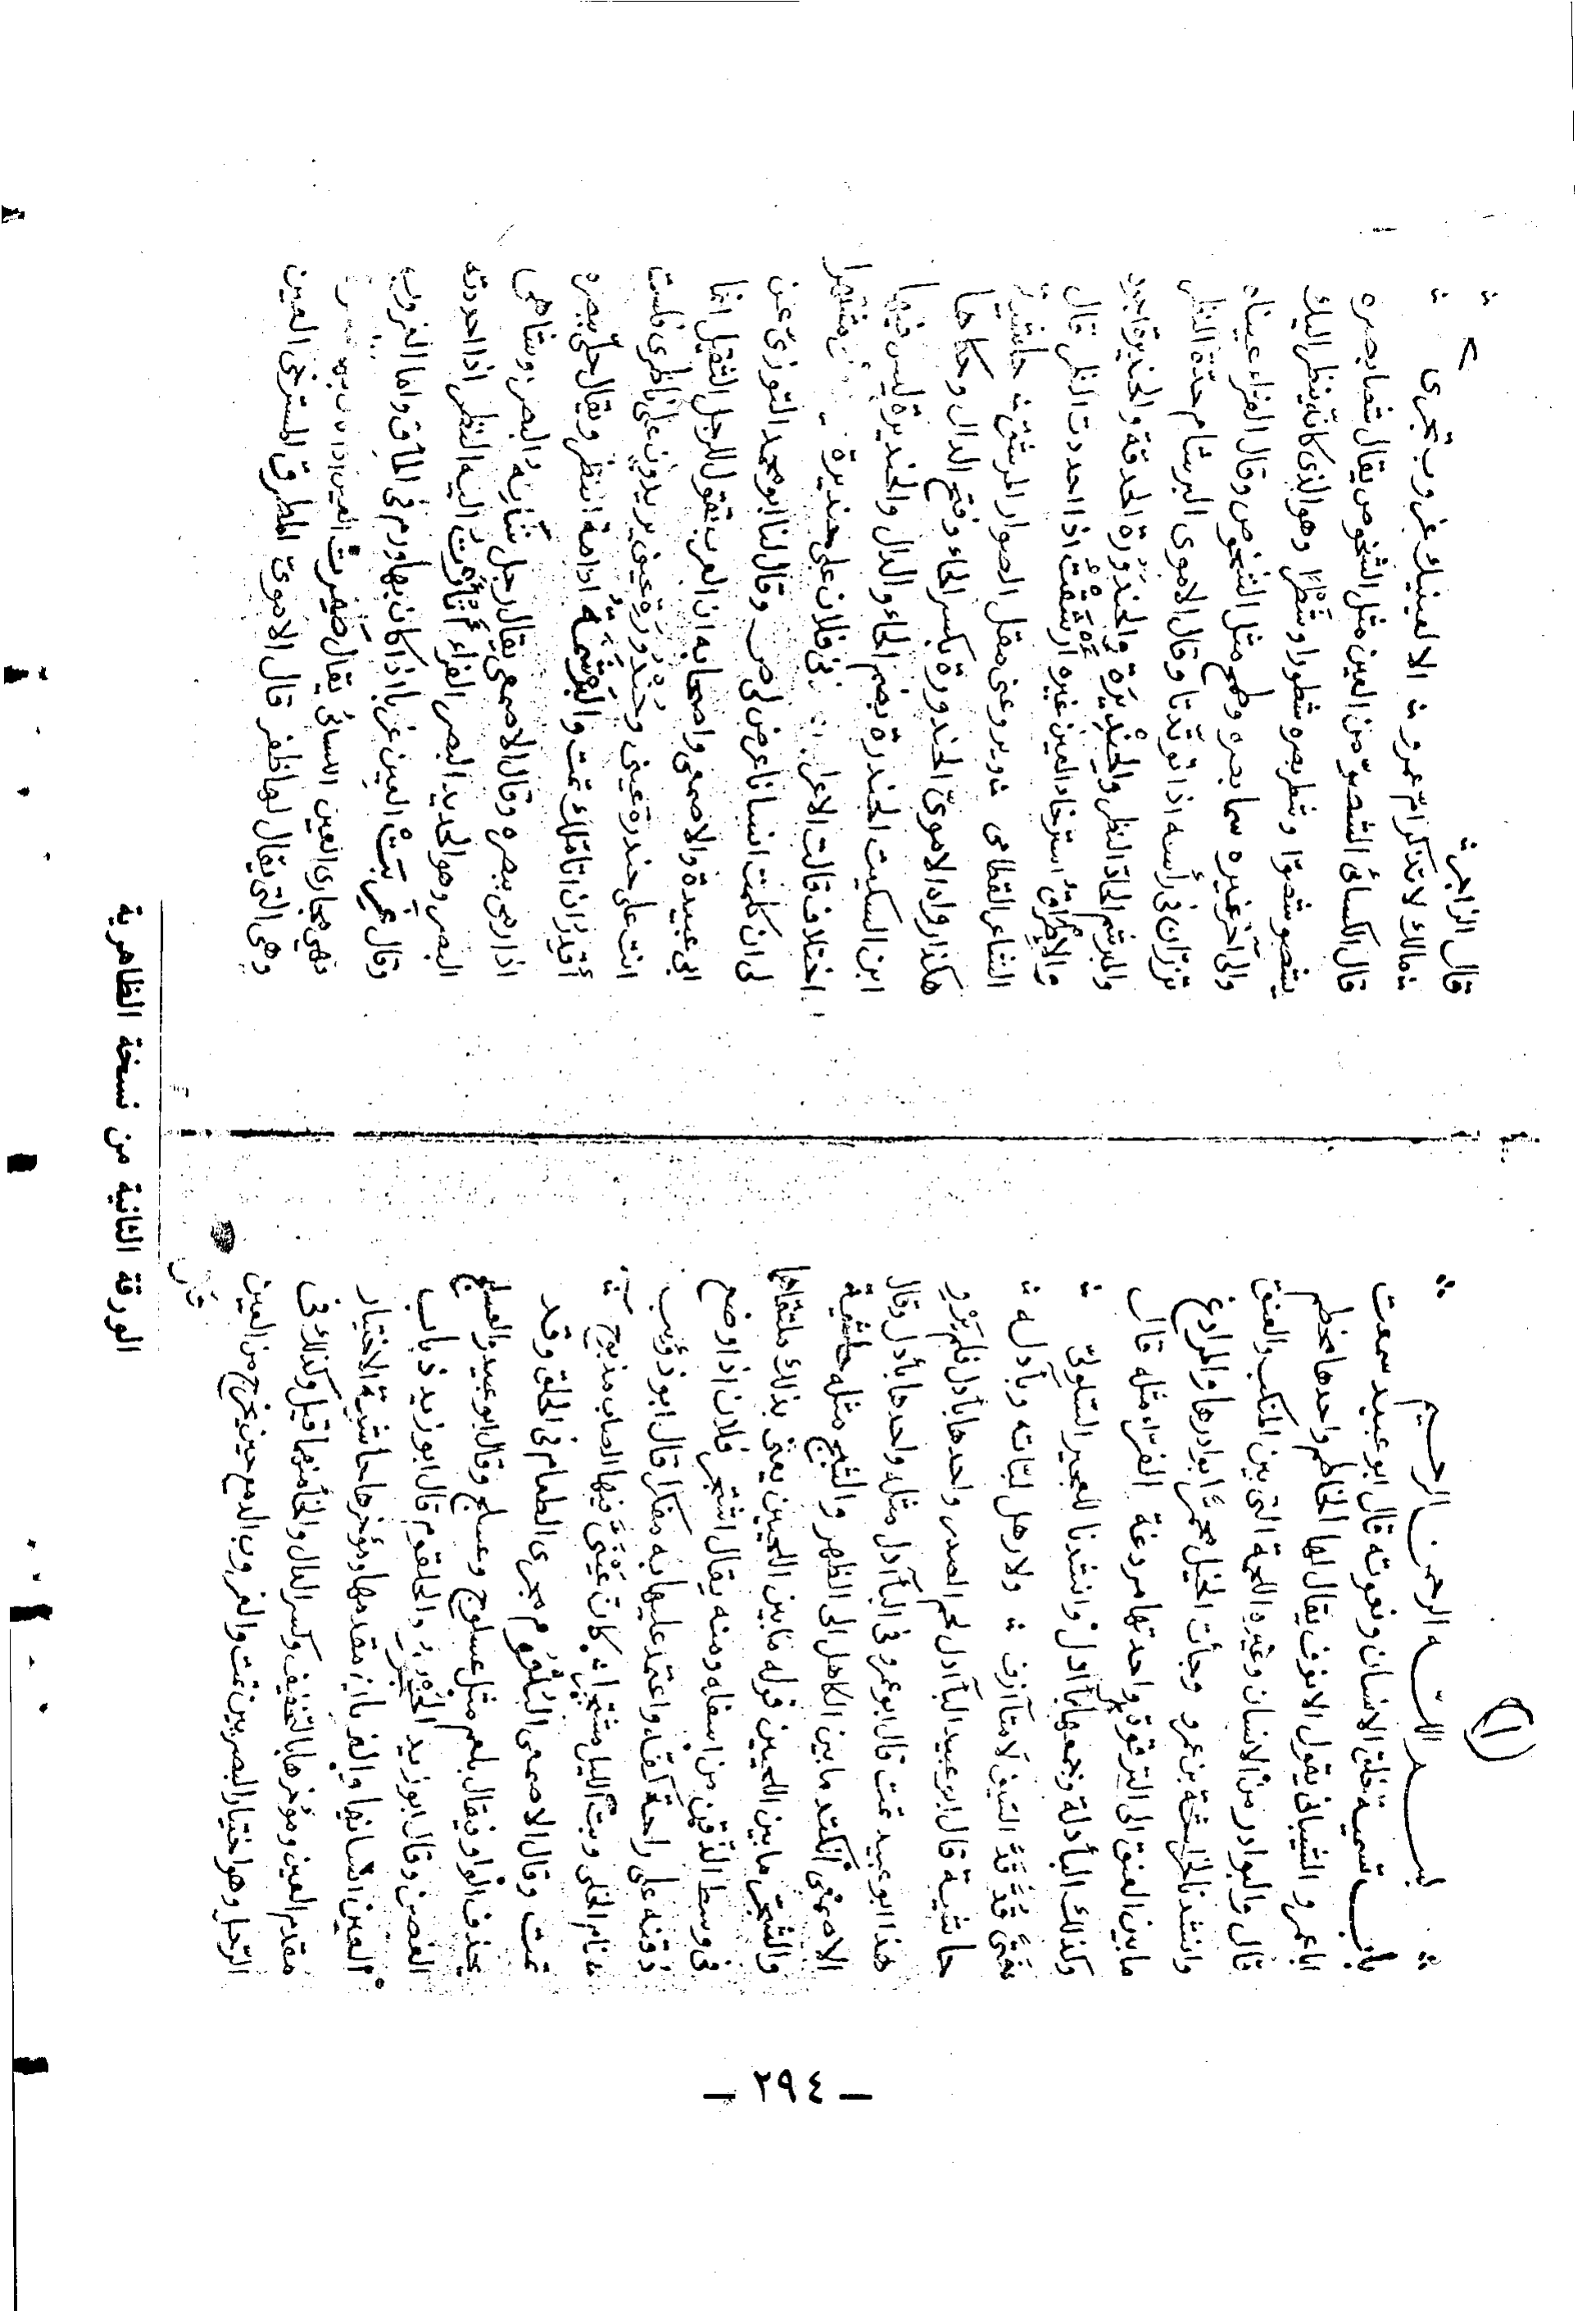 بسم الله الرحمن الرحيم
باب تسمية خلق الانسان ونعوته قال ابو عبيد سمعت
ابا عمرو الشيباني يقول الانوف يقال لها المخاطم واحدها مخطم
قال والبوادر من الانسان وغيره اللحمة التي بين المنكب والعنق
وانشدنا لخراشة بن عمرو وجاءت الخيل محمرًّا بوادرها والمرادغ
ما بين العنق الى الترقوة واحدتها مردغة الفراء مثله قال
وكذلك البأدلة وجمعها بآدل وانشدنا للعجير السلولي
فتى قدّ قدّ السيف لا متآزف ولا رهل لباته وبآدله
حاشية قال ابو عبيد البآدل لحم الصدر واحدها بأدل فلم يرو
هذا ابو عبيد تمت قال ابو عمرو في البآدل مثله واحدها بأدل وقال
الاصمعي الكتد ما بين الكاهل الى الظهر والثبج مثله حاشية
والشجر ما بين اللحيين قوله ما بين اللحيين يعني بذلك ملتقاهما
في وسط الذقن من اسفله ومنه يقال اشتجر فلان اذا وضع
ذقنه على راحة كفه واعتمد عليها به مفكرا قال ابو ذؤيب
نام الخلي وبت الليل مشتجرا كان عيني فيها الصاب مذبوح
تمت وقال الاصمعي البلعوم مجرى الطعام في الحلق وقد
يحذف الواو فيقال بلعم مثل عسلوج وعسلج وقال ابو عبيد والعسلج
الغصن وقال ابو زيد والحلقوم قال ابو زيد ذباب
العين انسانها مقدمها ومؤخرها حاشية الاختيار
مقدم العين ومؤخرها بالتخفيف وكسر الدال والخاء منهما قيل وكذلك في
الرحل وهو اختيار البصريين تمت والغروب الدمع حين يخرج من العين
قال
٢
قال الراجز
مالك لا تذكر ام عمرو الا لعينيك غروب تجري
قال الكسائي الشصو من العين مثل الشخوص يقال شصا بصره
يشصو شصوا وشطر بصره شطورا وشطرًا وهو الذي كانه ينظر اليك
والى آخر غيره سما بصره وطمح مثل الشخوص وقال الفراء عيناه
تزرّان في رأسه اذا توقدتا وقال الاموي البرشام حدة النظر
والمبرشم الحاد النظر والحنديرة والحندورة الحدقة والحنديرة اجود
والاطراق استرخاء العين غيره ارشقت اذا احددت النظر قال
الشاعر القطامي ويروعني مقل الصوار المرشق حاشية
هكذا رواه الاموي الحندورة بكسر الحاء وفتح الدال وحكاها
ابن السكيت الحندرة بضم الحاء والدال والحنديرة ليس فيها
اختلاف قالت فلان على حنديرة
لى ان كلمت انسانا عرض لى وقال لنا ابو محمد التوزي عن
ابي عبيدة والاصمعي واصحابه ان العرب تقول للرجل الثقيل انما
انت على حندرة عيني وحندورة عيني يريدون على ناظري فلست
أقدر ان اتأملك تمت والبرشمة ادامة النظر ويقال جلّى ببصره
اذا رمى ببصره وقال الاصمعي يقال رجل شائه البصر وشاهي
البصر وهو الحديد البصر الفراء أتأرت اليه النظر اذا احددته
وقال غربت العين غربا اذا كان بها ورم في المأق واما الغروب
فهي مجاري العين الكسائي يقال ظفرت العين اذا
وهي التي يقال لها ظفر قال الاموي المطرق المسترخي العين
الورقة الثانية من نسخة الظاهرية
— ٢٩٤ —